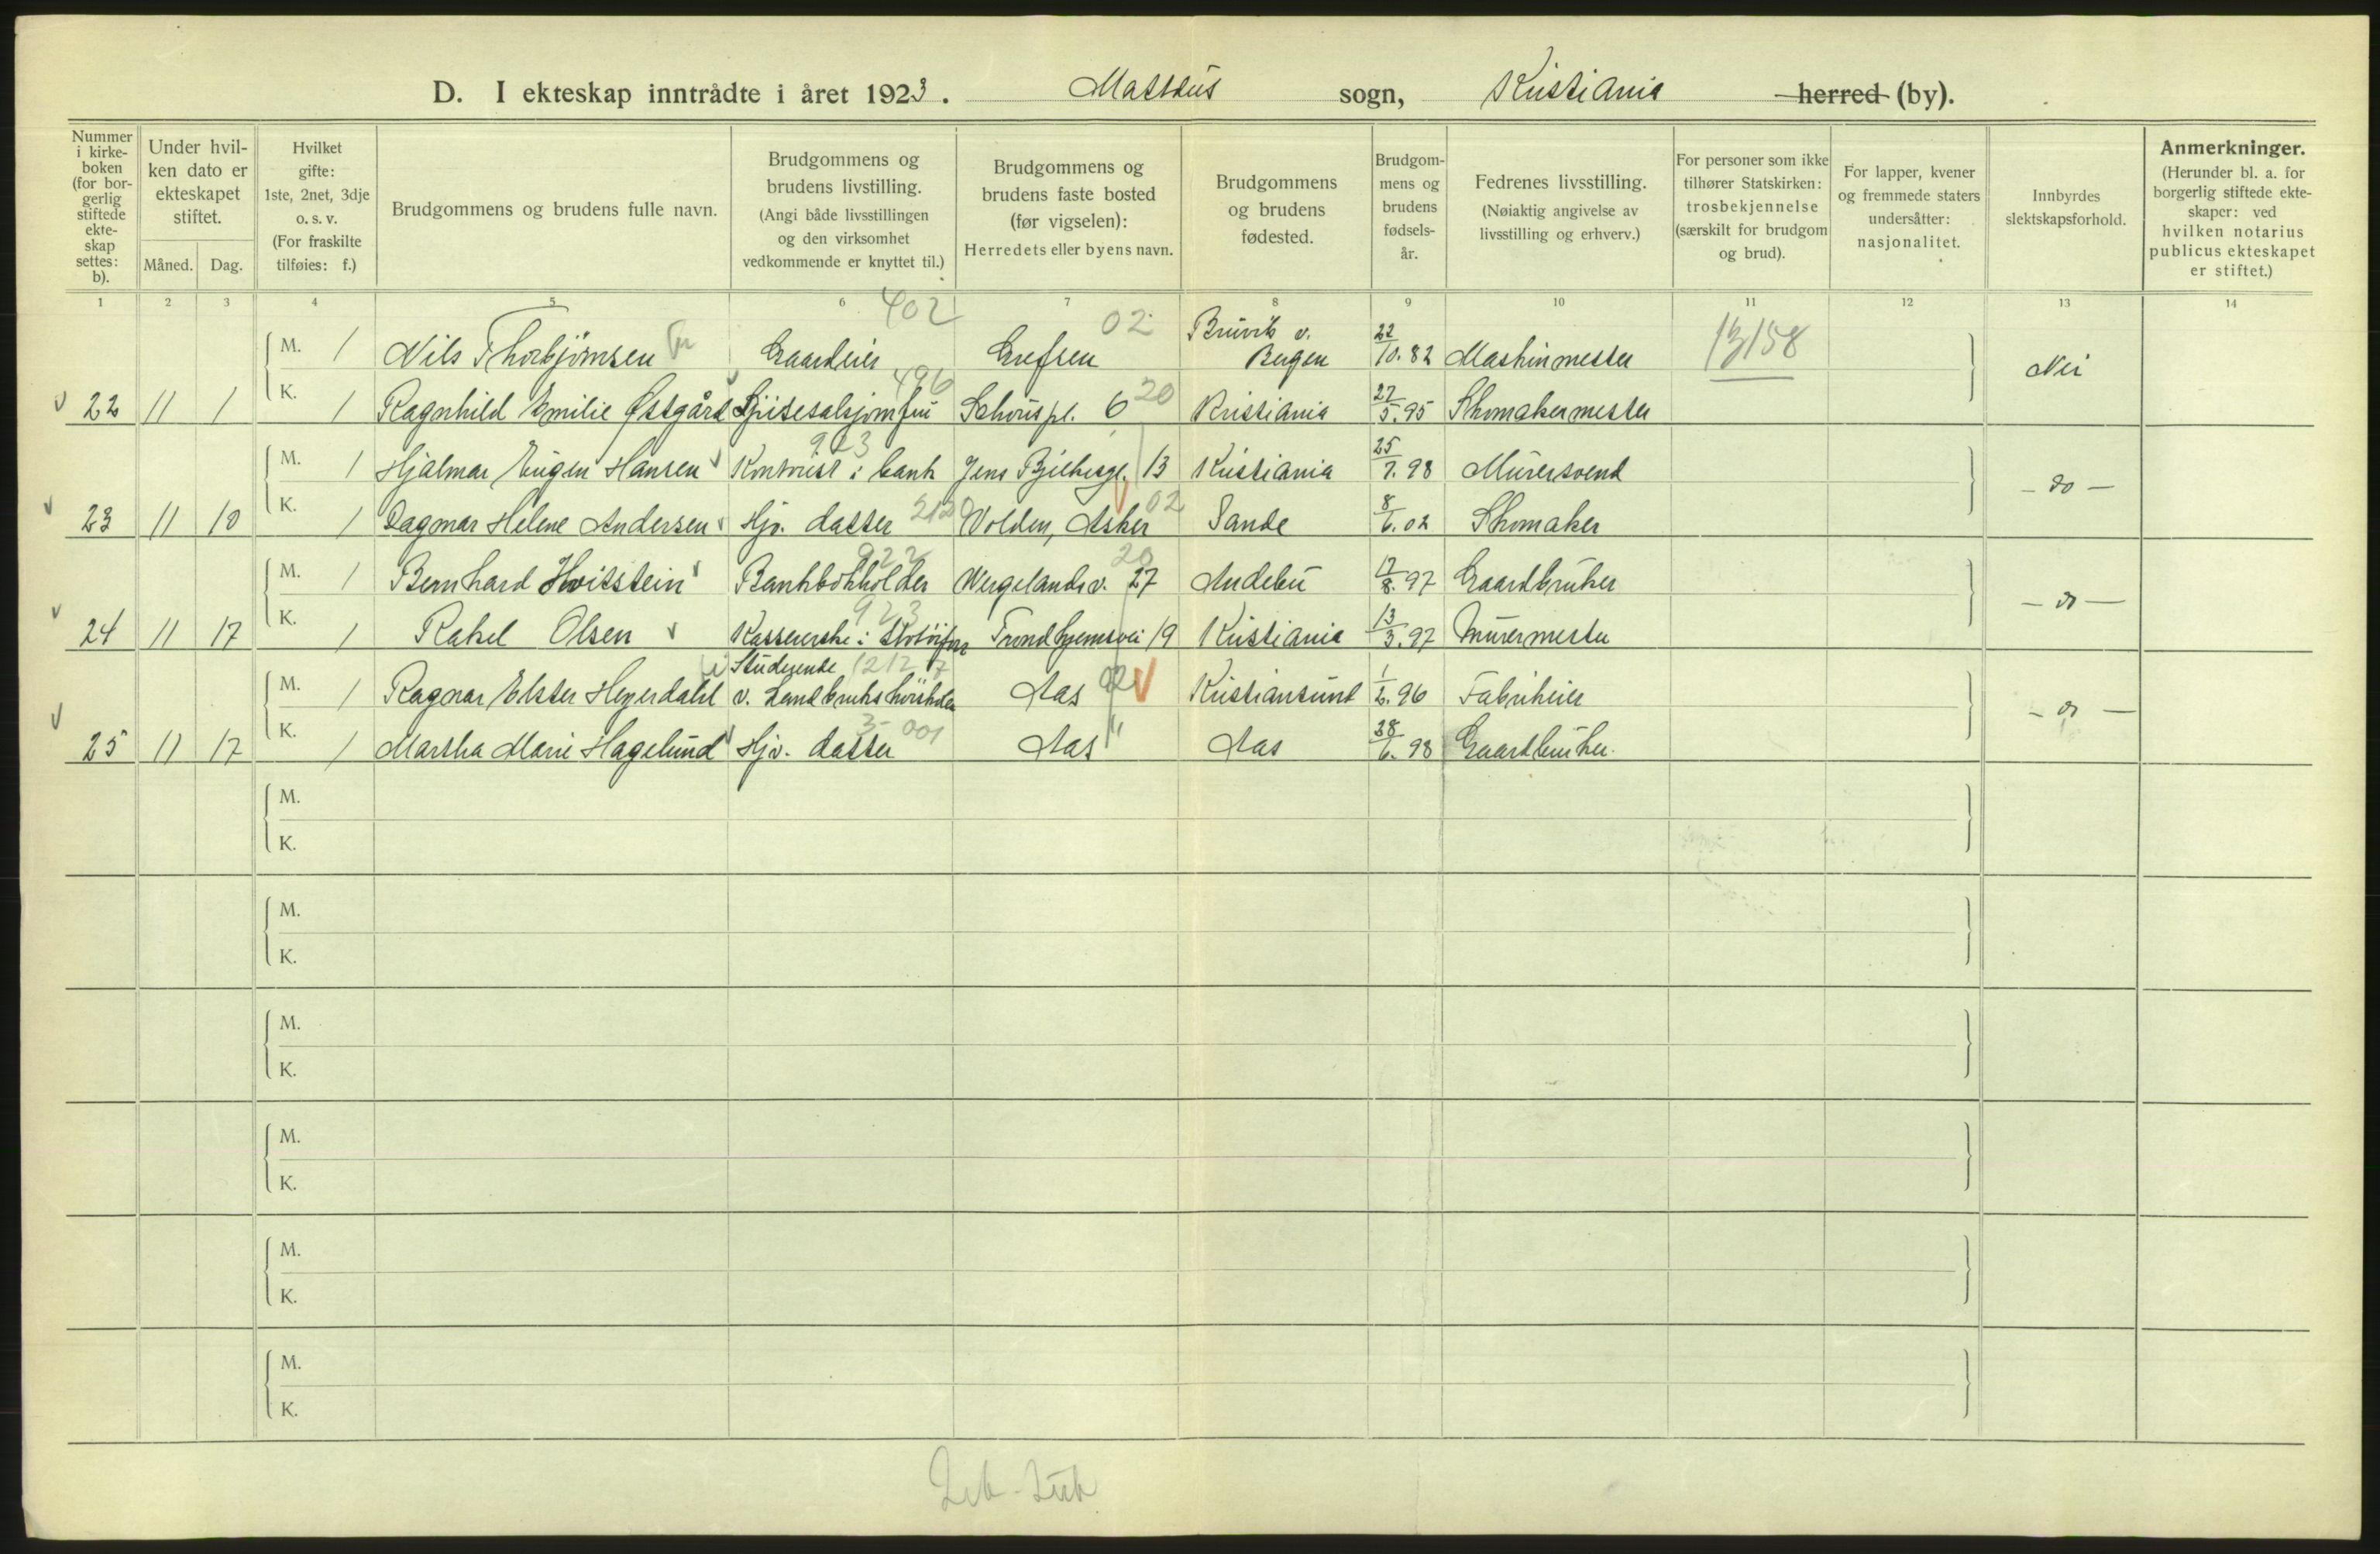 D. I ekteskap inntrådte i året 1923. Mattæus sogn, Kristiania herred (by).
Nummer i kirke- boken (for bor- gerlig stiftede ekte- skap settes: b).
Under hvil- ken dato er ekteskapet stiftet.
Måned. Dag.
Hvilket gifte: 1ste, 2net, 3dje o. s. v. (For fraskilte tilføies: f.)
Brudgommens og brudens fulle navn.
Brudgommens og brudens livstilling. (Angi både livsstillingen og den virksomhet vedkommende er knyttet til.)
Brudgommens og brudens faste bosted (før vigselen): Herredets eller byens navn.
Brudgommens og brudens fødested.
Brudgom- mens og brudens fødsels- år.
Fedrenes livsstilling. (Nøiaktig angivelse av livsstilling og erhverv.)
For personer som ikke tilhører Statskirken: trosbekjennelse (særskilt for brudgom og brud).
For lapper, kvener og fremmede staters undersåtter: nasjonalitet.
Innbyrdes slektskapsforhold.
Anmerkninger. (Herunder bl. a. for borgerlig stiftede ekte- skaper: ved hvilken notarius publicus ekteskapet er stiftet.)
1 2 3 4 5 6 7 8 9 10 11 12 13 14
402 02
M. 1 Nils Thorbjørnsen Gaardeier Grefsen Bruvik v. Bergen 22/10.82 Maskinmester 13/158 Nei
496 20
22 11 1 K. 1 Ragnhild Emilie Østgård Spisesalsjomfru Schouspl. 6 Kristiania 27/5.95 Skomakermester
923
M. 1 Hjalmar Eugen Hansen Kontorist i bank Jens Bjelkesgt. 13 Kristiania 25/7.98 Murersvend - do -
23 11 10 K. 1 Dagmar Helene Andersen Hjv. datter 212 Volden, Asker 02 Sande 8/6.02 Skomaker
922 20
M. 1 Bernhard Hvitstein Bankbokholder Wergelandsv. 27 Andebu 17/8.97 Gaardbruker - do -
923
24 11 17 K. 1 Rakel Olsen Kasserske i Trondhjemsvei 19 Kristiania 13/3.97 Murermester
Studerende 1212
M. 1 Ragnar Elster Heyerdahl v. Landbrukshøiskolen Aas 02 Kristiansund 1/2.96 Fabrikeier - do -
001
25 11 17 K. 1 Martha Marie Hagelund Hjv. datter Aas " Aas 28/6.98 Gaardbruker.
M.
K.
M.
K.
M.
K.
M.
K.
M.
K.
M.
K.